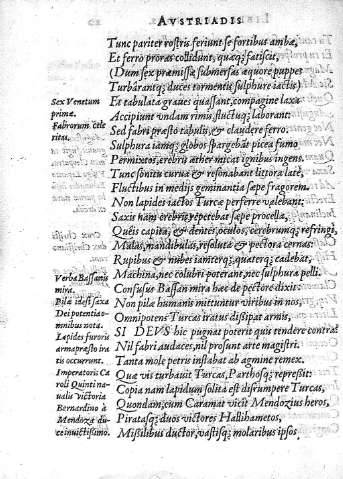 AVSTRIADIS
Tunc pariter rostris feriunt se fortibus ambæ,
Et ferro proras collidunt, quæq; fatiscit,
(Dum sex præmissæ submersas æquore puppes
Turbârantq; duces tormentis sulphure iactis)
Sex Venetum
Et tabulata graues quassant, compagine laxa
primæ.
Accipiunt vndam rimis, fluctuq; laborant:
Fabrorum cele
Sed fabri præsto tabulis, & claudere ferro.
ritas.
Sulphura iamq; globos spargebāt picea fumo
Permixtos, crebris æther micat ignibus ingens.
Tunc sonitu curua & resonabant littora latè,
Fluctibus in medijs geminantia sæpe fragorem.
Non lapides iactos Turcæ perferre valebant:
Saxis nam crebris repetebat sæpe procella,
Quêis capita, & dentes, oculos, cerebrumq; refringi,
Malas, mandibulas, resoluta & pectora cernas:
Rupibus & nibes iamterq; quaterq; cadebat,
Verba Bassanis
Machina, nec colubri poterant, nec sulphura pelli.
mira.
Consusus Bassan mira hac de pectore dixit:
Pila idest saxa
Non pila humanis mittuntur viribus in nos,
Dei potentia o-
Omnipotens Turcas iratus dissipat armis,
mnibus nota.
SI DEVS hic pugnat poterit quis tendere contrà?
Lapides furoris
Nil fabri audaces, nil prosunt arte magistri.
arma præsto ira
Tanta mole petris instabat ab agmine remex.
tis occurrunt.
Quæ vis turbauit Turcas, Parthosq; repressit:
Imperatoris Ca
roli Quinti na-
Copia nam lapidum solita est disrumpere Turcas,
ualu victoria
Quondam, cum Caramat vicit Mendozius heros,
Bernardino à
Piratasq; duos victores Hallihametos,
Mendoza du-
Missilibus ductor, vastisq; molaribus ipsos
ce inuictissimo.